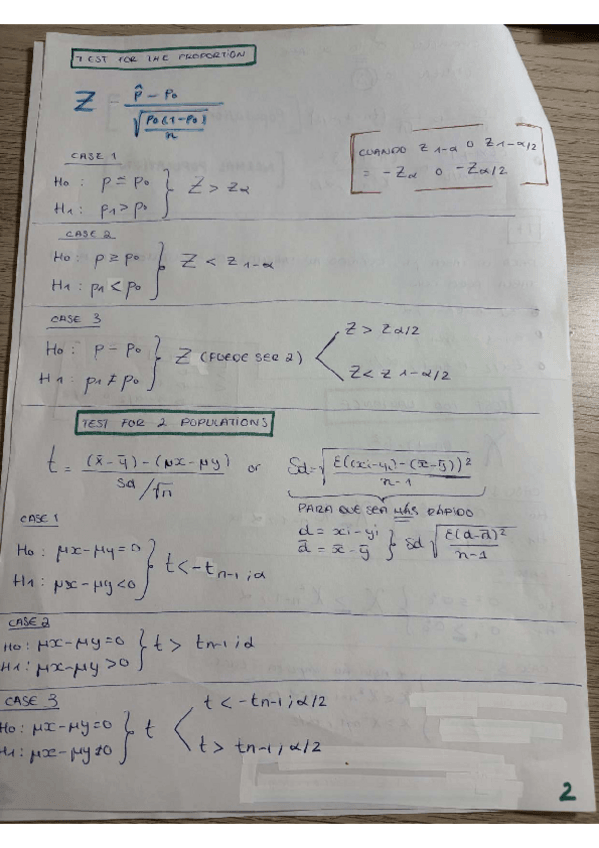 TEST FOR THE PROPORTION
Z = (p̂ - p₀) / √(p₀(1-p₀)/n)
CUANDO Z 1-α O Z 1-α/2
= -Zα O -Zα/2
CASE 1
H₀: p ≃ p₀
H₁: p₁ > p₀ } Z > Zα
CASE 2
H₀: p ≥ p₀
H₁: p₁ < p₀ } Z < Z 1-α
CASE 3
H₀: p = p₀
H1: p₁ ≠ p₀ } Z (PUEDE SER 2)
Z > Zα/2
Z < Z 1-α/2
TEST FOR 2 POPULATIONS
t = ((x̄ - ȳ) - (μx - μy)) / (Sd/√n) or Sd = √(Σ((xi-yi)-(x̄-ȳ))² / (n-1))
PARA QUE SEA MÁS RÁPIDO
d = xi - yi
d̄ = x̄ - ȳ } Sd √(Σ(d-d̄)² / (n-1))
CASE 1
H₀: μx - μy = 0
H1: μx - μy < 0 } t < -t n-1; α
CASE 2
H₀: μx - μy = 0
H1: μx - μy > 0 } t > t n-1; α
CASE 3
H₀: μx - μy = 0
H1: μx - μy ≠ 0 } t
t < -t n-1; α/2
t > t n-1; α/2
2